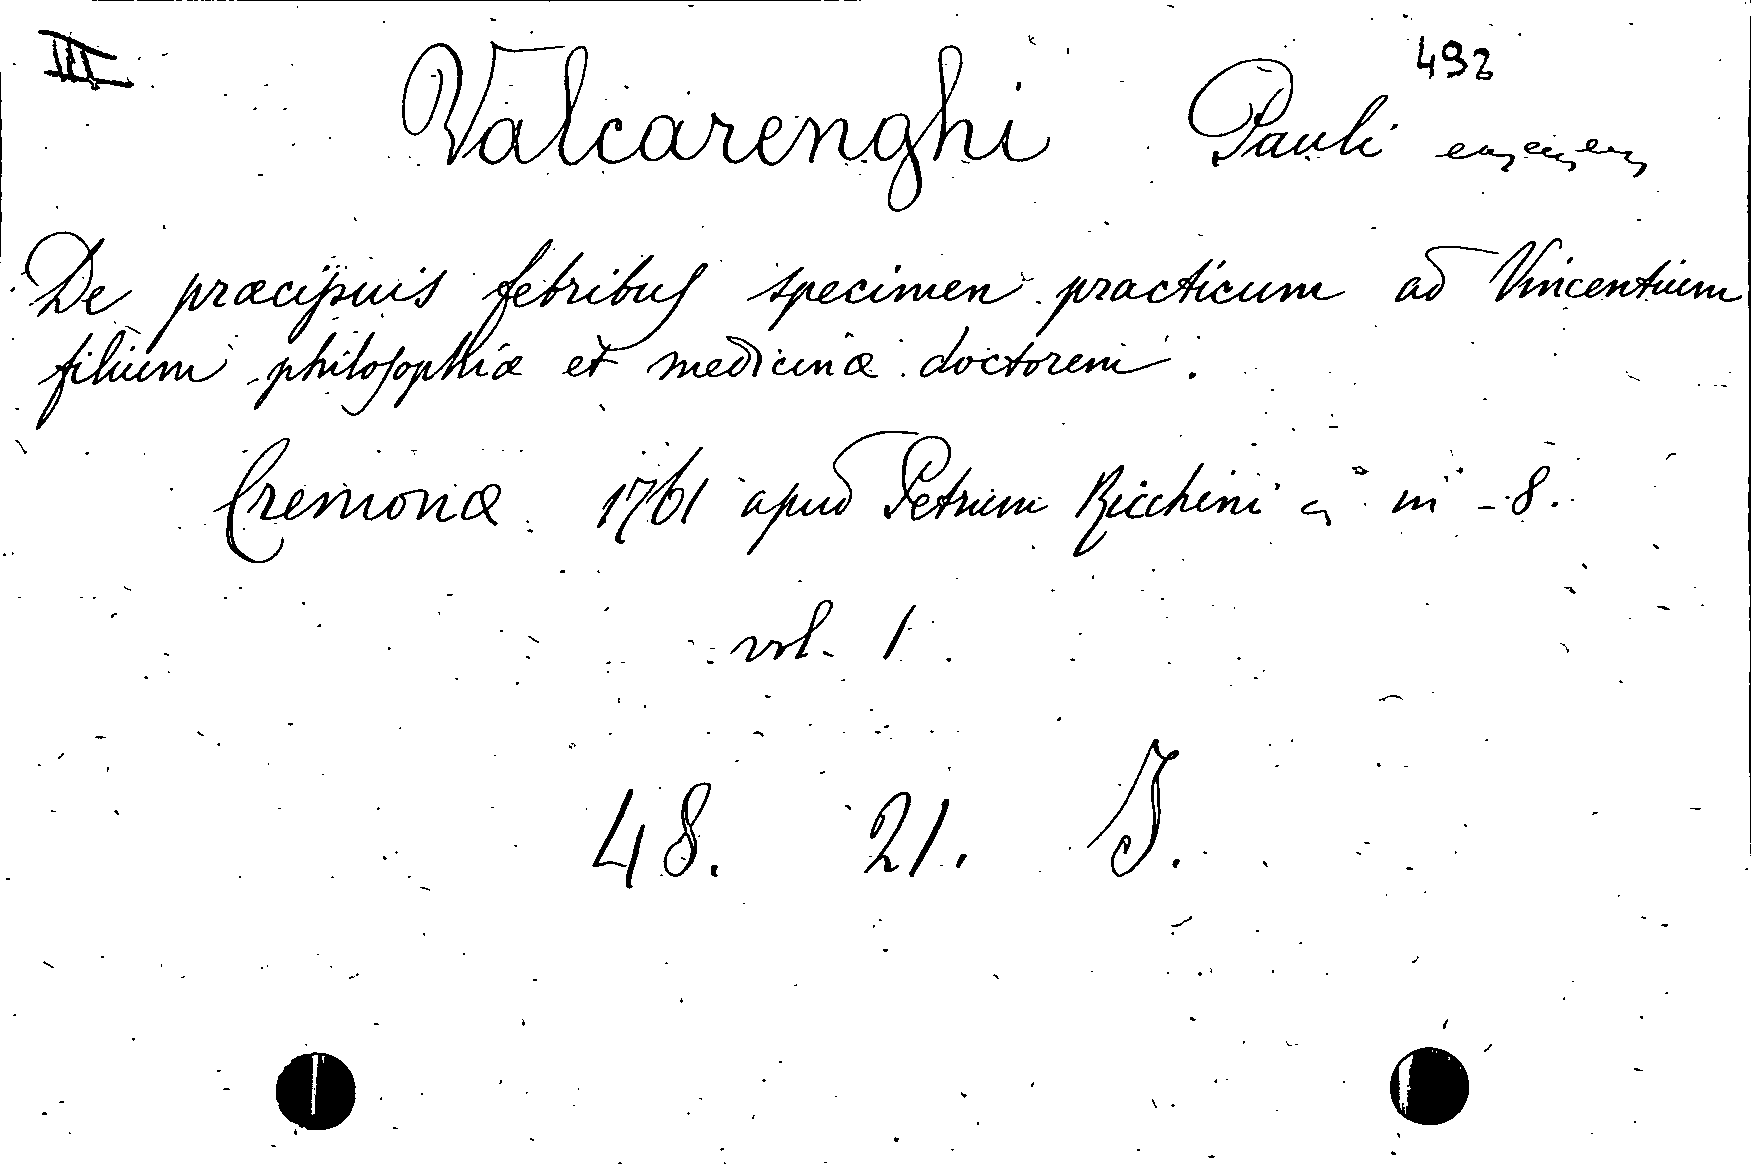 III
492
Valcarenghi Pauli
De præcipuis febribus specimen practicum ad Vincentium
filium philosophiæ et medicinæ doctorem.
Cremonæ 1761 apud Petrum Ricchini in -8.
vol. 1
48. 21. J.